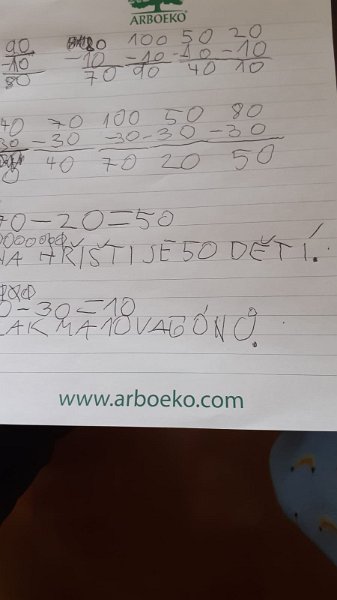 ARBOEKO
90 80 100 50 20
-10 -10 -10 -10 -10
80 70 90 40 10
40 70 100 50 80
30 -30 -30 -30 -30
40 70 20 50
70-20=50
NA HŘIŠTI JE 50 DĚTÍ.
0-30=10
LAK MÁ 10 VAGÓNŮ.
www.arboeko.com